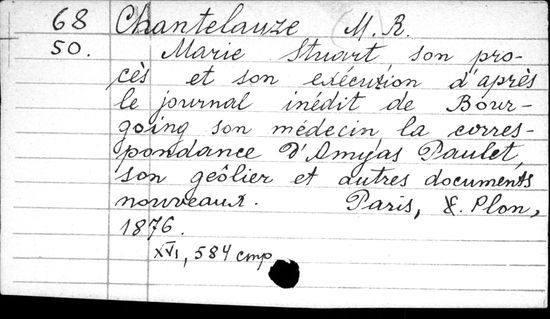 68 Chantelauze M. R.
50. Marie Stuart son pro-
cès et son exécution d'après
le journal inédit de Bour-
going son médecin la corres-
pondance d'Amyas Paulet,
son geôlier et autres documents
nouveaux. Paris, E. Plon,
1876.
XVI, 584 стр